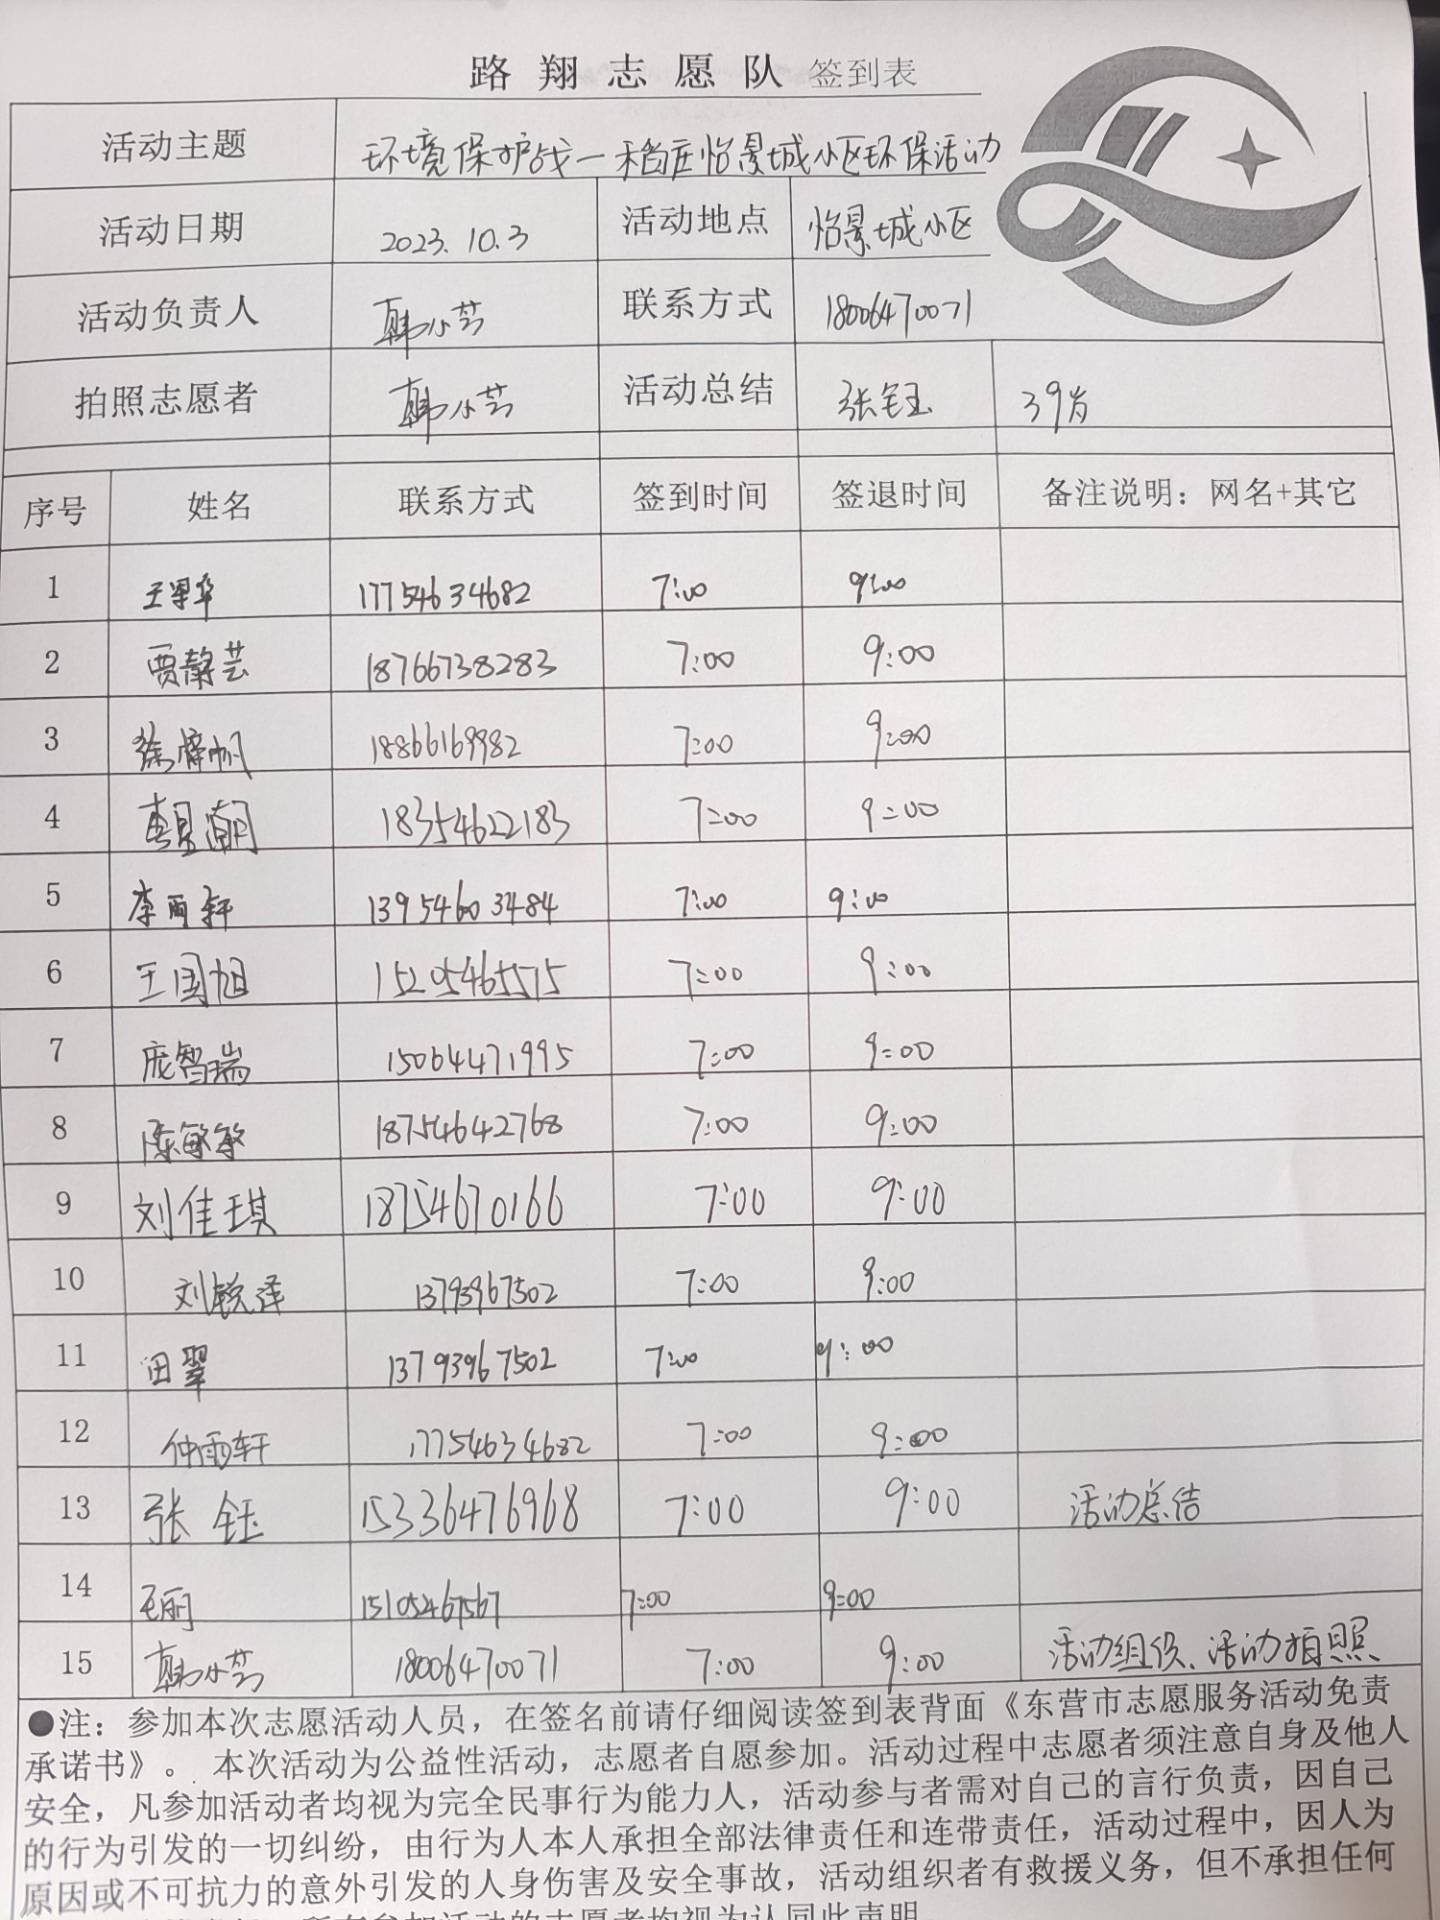 路翔志愿队 签到表
活动主题 环境保护战一稻庄怡景城小区环保活动
活动日期 2023.10.3 活动地点 怡景城小区
活动负责人 韩小芸 联系方式 18006470071
拍照志愿者 韩小芸 活动总结 张钰 39岁
序号 姓名 联系方式 签到时间 签退时间 备注说明：网名+其它
1 17754634682 7:00 9:00
2 贾静芸 18766738283 7:00 9:00
3 18866169982 7:00 9:00
4 18354622183 7:00 9:00
5 李雨轩 13954603484 7:00 9:00
6 王国旭 15205465575 7:00 9:00
7 庞智瑞 15064471995 7:00 9:00
8 陈敏敏 18754642768 7:00 9:00
9 刘佳琪 18754670166 7:00 9:00
10 刘锐泽 13793967502 7:00 9:00
11 田翠 13793967502 7:00 9:00
12 仲雨轩 17754634682 7:00 9:00
13 张钰 15336476968 7:00 9:00 活动总结
14 王丽 15105467567 7:00 9:00
15 韩小芸 18006470071 7:00 9:00 活动组织、活动拍照
●注：参加本次志愿活动人员，在签名前请仔细阅读签到表背面《东营市志愿服务活动免责
承诺书》。 本次活动为公益性活动，志愿者自愿参加。活动过程中志愿者须注意自身及他人
安全，凡参加活动者均视为完全民事行为能力人，活动参与者需对自己的言行负责，因自己
的行为引发的一切纠纷，由行为人本人承担全部法律责任和连带责任，活动过程中，因人为
原因或不可抗力的意外引发的人身伤害及安全事故，活动组织者有救援义务，但不承担任何
所有参加活动的志愿者均视为认同此声明